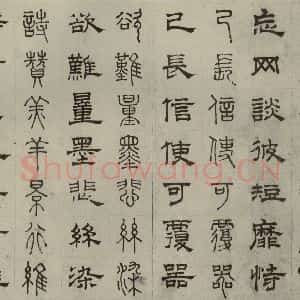 忘网談彼短靡恃
己長信使可覆器
己長信使可覆器
欲難量墨悲絲染
欲難量墨悲絲染
詩贊羔羊景行維
Shufawang.CN